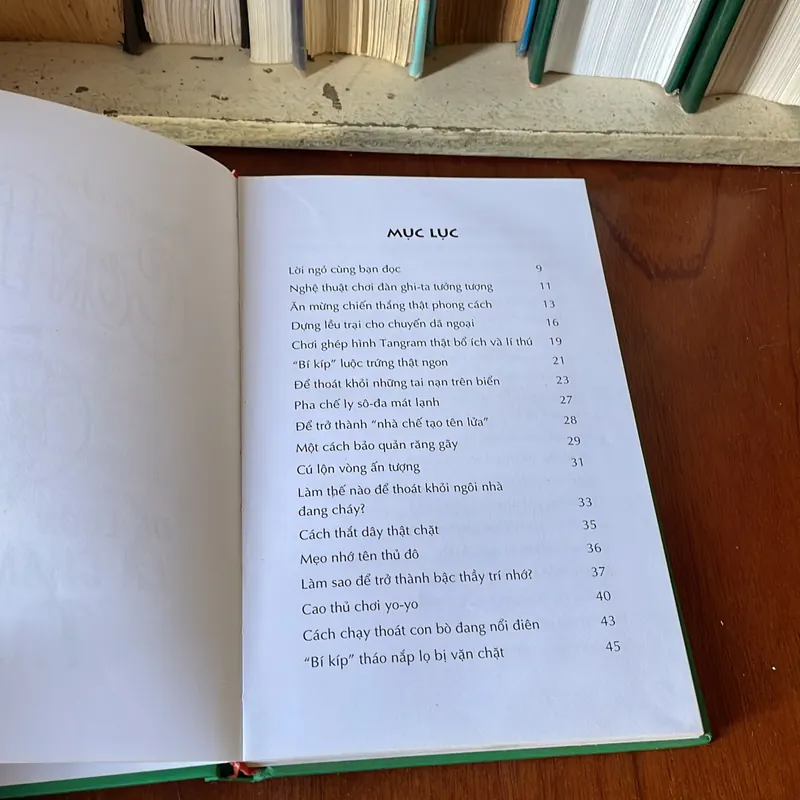 MỤC LỤC
Lời ngỏ cùng bạn đọc 9
Nghệ thuật chơi đàn ghi-ta tưởng tượng 11
Ăn mừng chiến thắng thật phong cách 13
Dựng lều trại cho chuyến dã ngoại 16
Chơi ghép hình Tangram thật bổ ích và lí thú 19
"Bí kíp" luộc trứng thật ngon 21
Để thoát khỏi những tai nạn trên biển 23
Pha chế ly sô-đa mát lạnh 27
Để trở thành "nhà chế tạo tên lửa" 28
Một cách bảo quản răng gãy 29
Cú lộn vòng ấn tượng 31
Làm thế nào để thoát khỏi ngôi nhà
đang cháy? 33
Cách thắt dây thật chặt 35
Mẹo nhớ tên thủ đô 36
Làm sao để trở thành bậc thầy trí nhớ? 37
Cao thủ chơi yo-yo 40
Cách chạy thoát con bò đang nổi điên 43
"Bí kíp" tháo nắp lọ bị vặn chặt 45